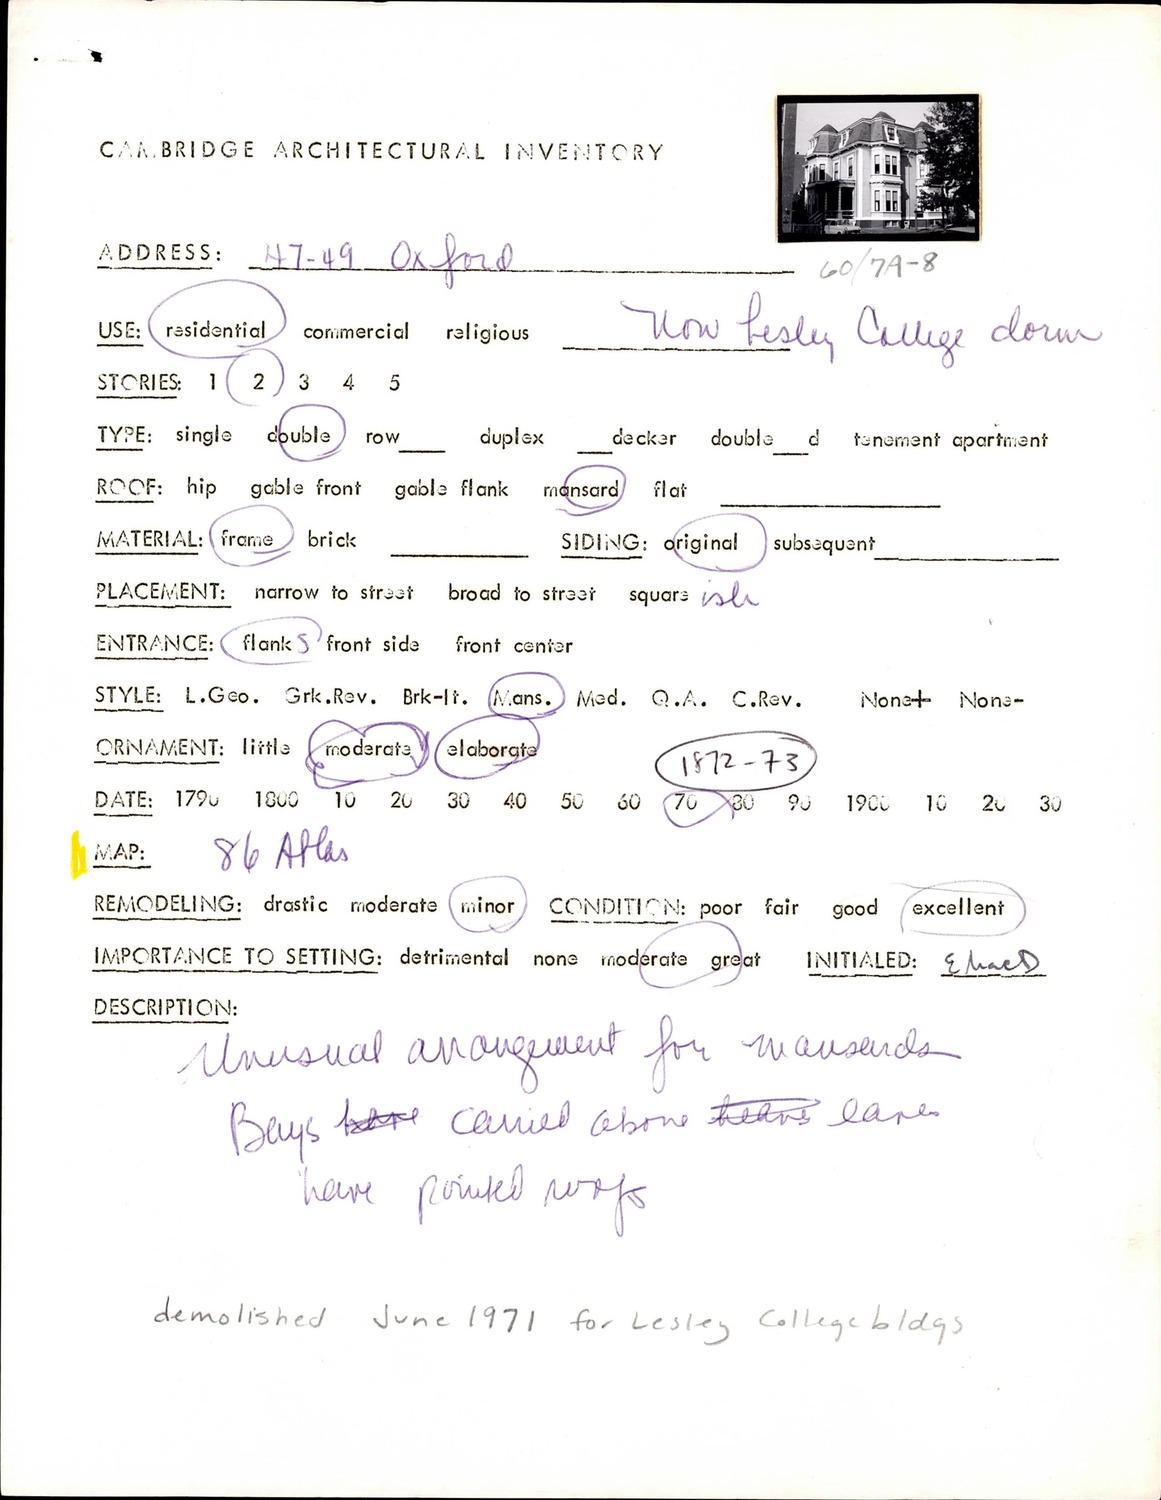 CAMBRIDGE ARCHITECTURAL INVENTORY
ADDRESS: 47-49 Oxford
60/7A-8
USE: residential commercial religious Now Lesley College dorm
STORIES: 1 2 3 4 5
TYPE: single double row___ duplex ___decker double___d tenement apartment
ROOF: hip gable front gable flank mansard flat
MATERIAL: frame brick SIDING: original subsequent
PLACEMENT: narrow to street broad to street square ish
ENTRANCE: flank S front side front center
STYLE: L.Geo. Grk.Rev. Brk-It. Mans. Med. Q.A. C.Rev. None+ None-
ORNAMENT: little moderate elaborate
1872-73
DATE: 1790 1800 10 20 30 40 50 60 70 80 90 1900 10 20 30
MAP: 86 Atlas
REMODELING: drastic moderate minor CONDITION: poor fair good excellent
IMPORTANCE TO SETTING: detrimental none moderate great INITIALED: EMacD
DESCRIPTION:
Unusual arrangement for mansards
Bays have carried above eaves
have pointed roofs
demolished June 1971 for Lesley College bldgs